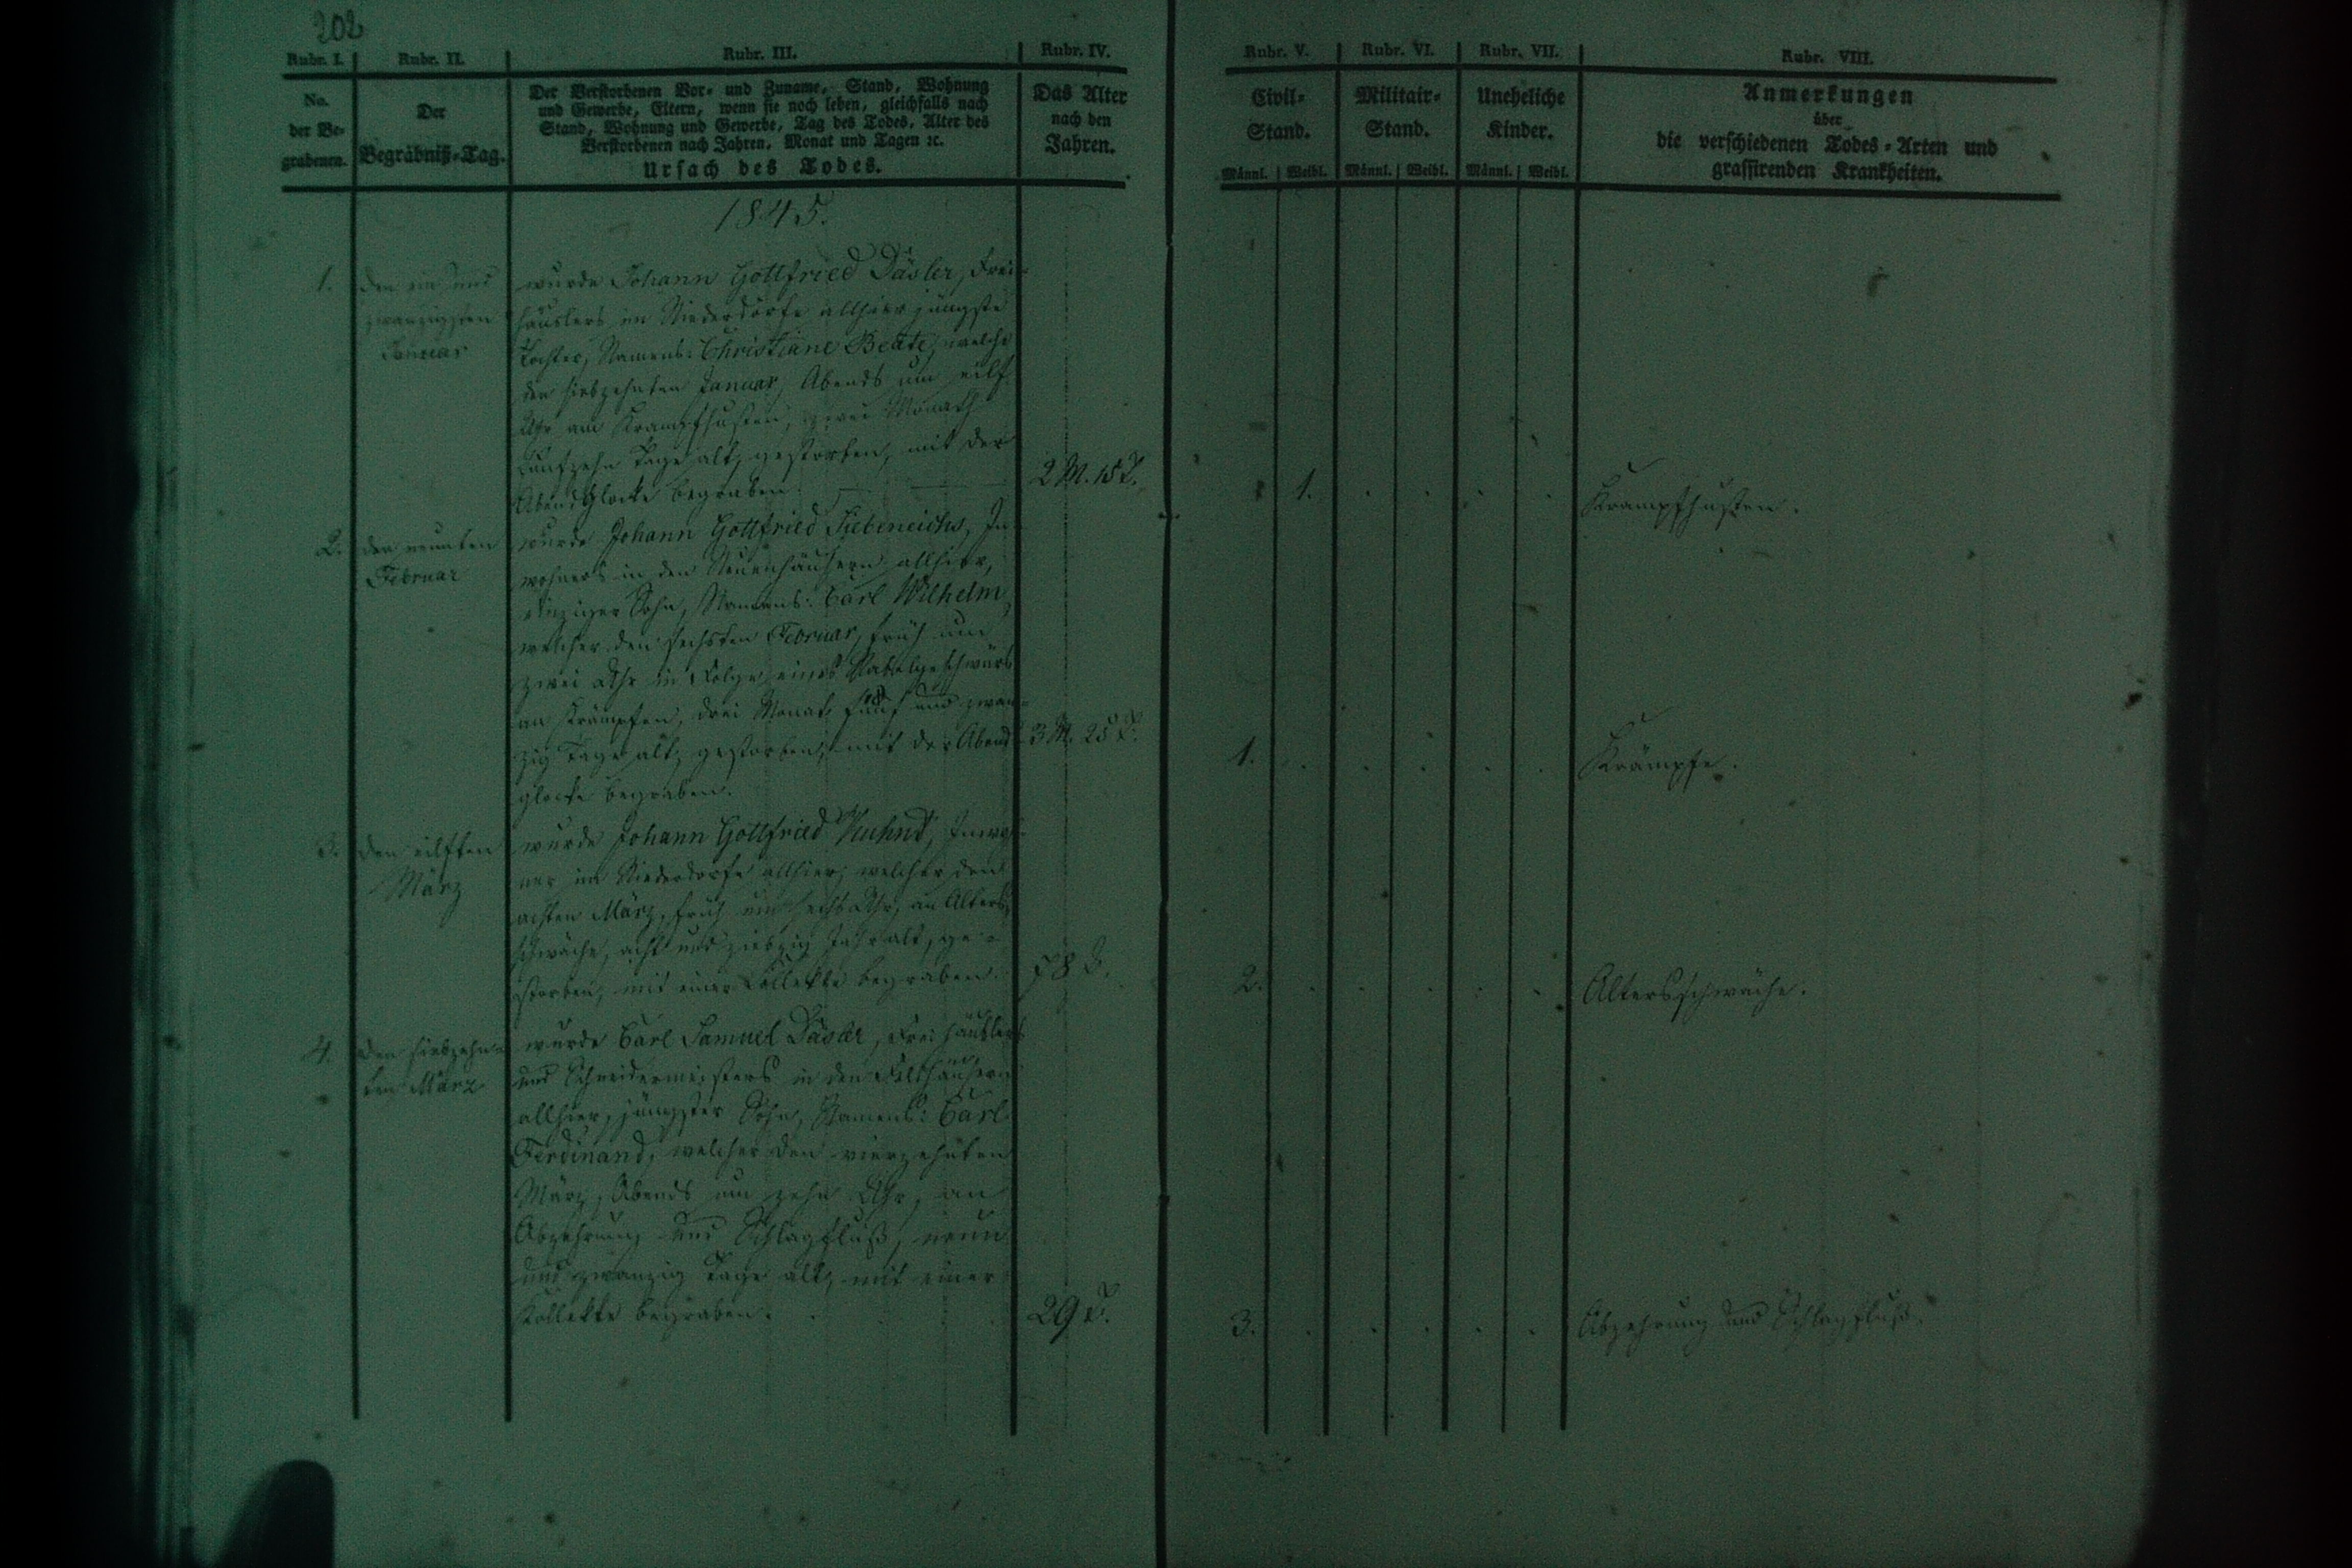 202
Rubr. I. Rubr. II. Rubr. III. Rubr. IV. Rubr. V. Rubr. VI. Rubr. VII. Rubr. VIII.
No.
der Be-
grabenen.
Der
Begräbniß-Tag.
Der Verstorbenen Vor- und Zuname, Stand, Wohnung
und Gewerbe, Eltern, wenn sie noch leben, gleichfalls nach
Stand, Wohnung und Gewerbe, Tag des Todes, Alter des
Verstorbenen nach Jahren, Monat und Tagen ꝛc.
Ursach des Todes.
Das Alter
nach den
Jahren.
Civil-
Stand.
Männl. Weibl.
Militair-
Stand.
Männl. Weibl.
Uneheliche
Kinder.
Männl. Weibl.
Anmerkungen
über
die verschiedenen Todes-Arten und
grassirenden Krankheiten.
1845.
1.
den ein und
zwanzigsten
Januar
wurde Johann Gottfried Däsler, Frei-
häuslers im Niederdorfe allhier jüngste
Tochter, Namens: Christiane Beate, welche
den siebzehnten Januar, Abends um eilf
Uhr am Krampfhusten, zwei Monath
fünfzehn Tage alt, gestorben, mit der
Abendglocke begraben.
2 M. 15 T.
1.
Krampfhusten.
2.
den neunten
Februar
wurde Johann Gottfried Siebeneichs, In-
wohners in den Neuenhäusern allhier,
einziger Sohn, Namens: Carl Wilhelm,
welcher den sechsten Februar, früh um
zwei Uhr in Folge eines Nabelgeschwürs
an Krämpfen, drei Monat, fünf und zwan-
zig Tage alt, gestorben, mit der Abend-
glocke begraben.
3 M. 25 T.
1.
Krämpfe.
3.
den eilften
März
wurde Johann Gottfried Kuhnt, Inwoh-
ner im Niederdorfe allhier, welcher den
achten März, früh um sechs Uhr, an Alters-
schwäche, acht und siebzig Jahr alt, ge-
storben, mit einer Collekte begraben.
78 J.
2.
Altersschwäche.
4.
den siebzehn-
ten März
wurde Carl Samuel Däsler, Freihäuslers
und Schneidermeisters in den
allhier, jüngster Sohn, Namens: Carl
Ferdinand, welcher den vierzehnten
März, Abends um zehn Uhr, an
Abzehrung und Schlagfluß, neun
und zwanzig Tage alt, mit einer
Kollekte begraben.
29 T.
3.
Abzehrung und Schlagfluß.